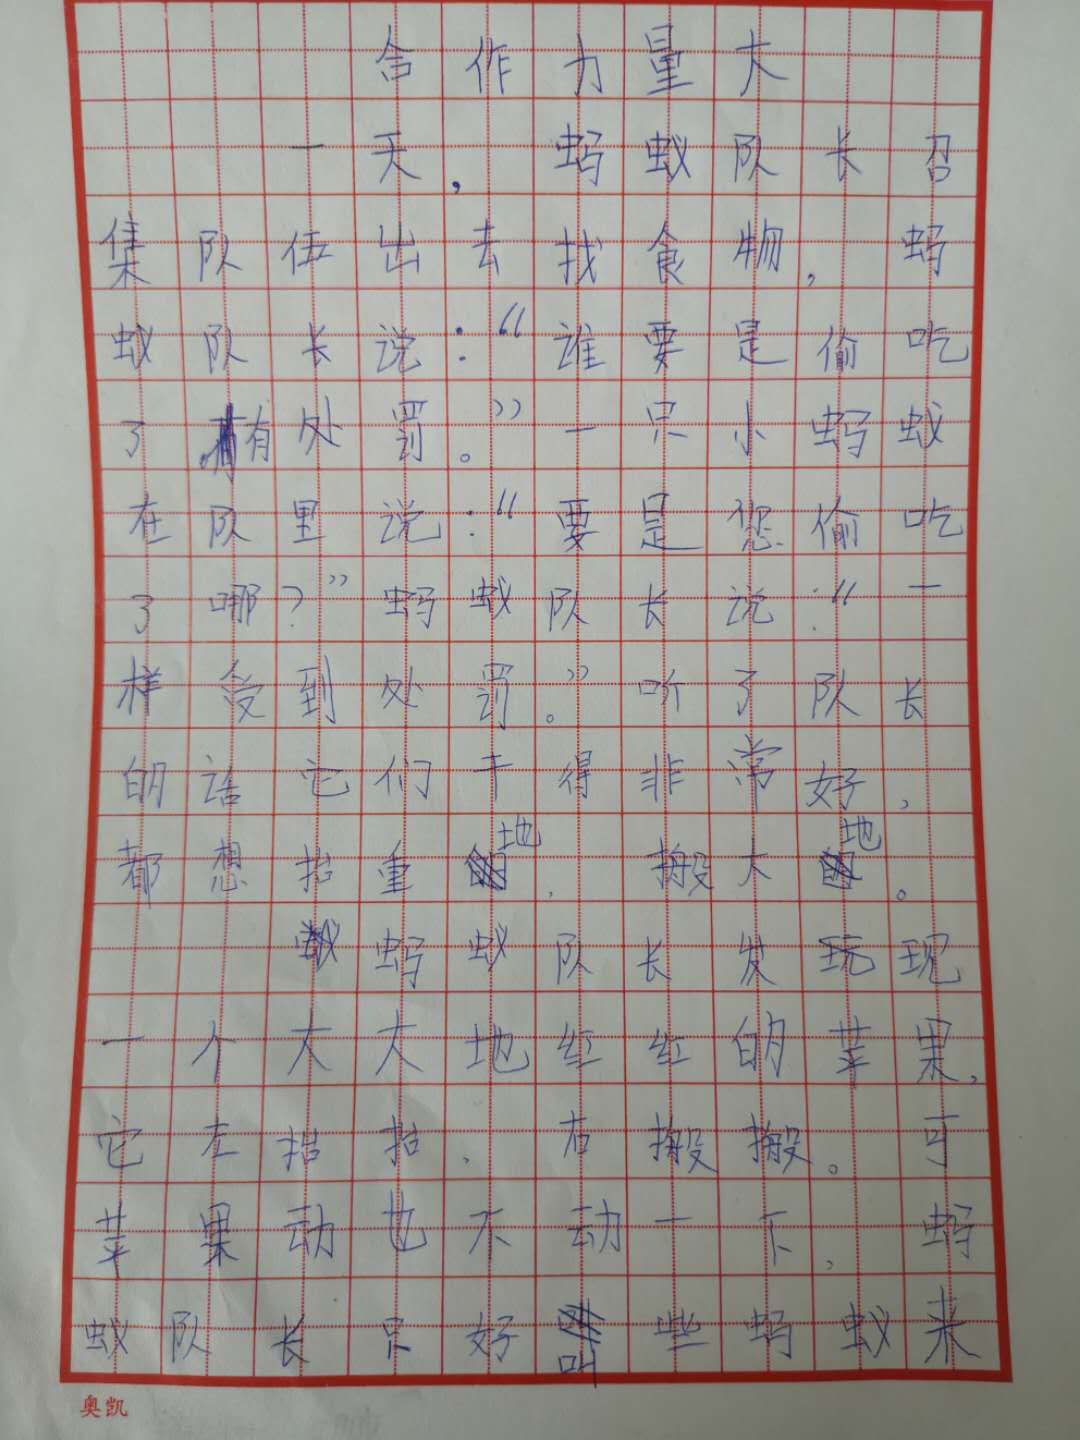 合作力量大
一天，蚂蚁队长召
集队伍出去找食物，蚂
蚁队长说：“谁要是偷吃
了有处罚。”一只小蚂蚁
在队里说：“要是您偷吃
了哪？”蚂蚁队长说：“一
样受到处罚。”听了队长
的话它们干得非常好，
都想抬重地，搬大地。
蚂蚁队长发现
一个大大地红红的苹果，
它左抬抬、右搬搬。可
苹果动也不动一下，蚂
蚁队长只好叫些蚂蚁来
奥凯